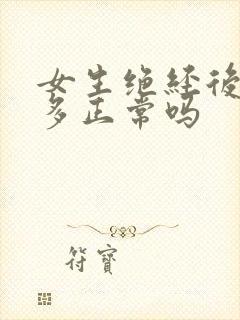 女生绝経後
多正常吗
符寶